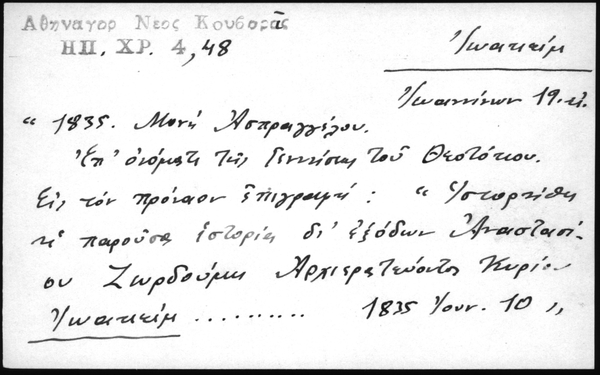 Αθηναγορ Νεος Κουβαρᾶς
ΗΠ. ΧΡ. 4, 48
Ἰωακείμ
Ἰωαννίνων 19. αἰ.
“ 1835. Μονή Ἀσπραγγέλου.
Ἐπ' ὀνόματι τῆς Γεννήσεως τοῦ Θεοτόκου.
Εἰς τόν πρόναον ἐπιγραφή : “ Ἱστορήθη
ἡ παροῦσα ἱστορία δι' ἐξόδων Ἀναστασί-
ου Ζωρδούμη Ἀρχιερατεύοντος Κυρίου
Ἰωακείμ .......... 1835 Ἰουν. 10 „